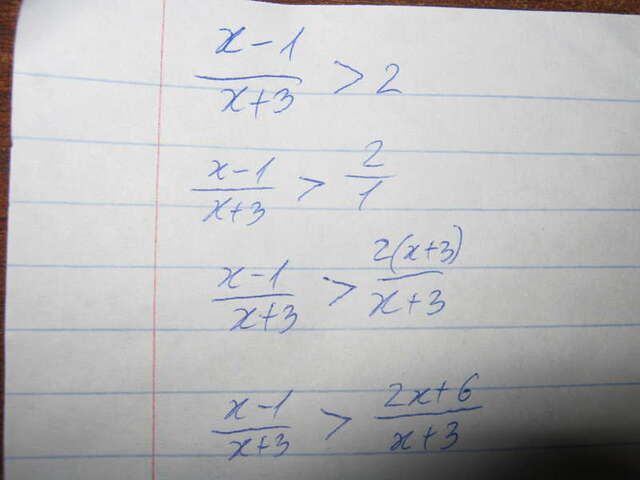 (x-1)/(x+3) > 2
(x-1)/(x+3) > 2/1
(x-1)/(x+3) > 2(x+3)/(x+3)
(x-1)/(x+3) > (2x+6)/(x+3)